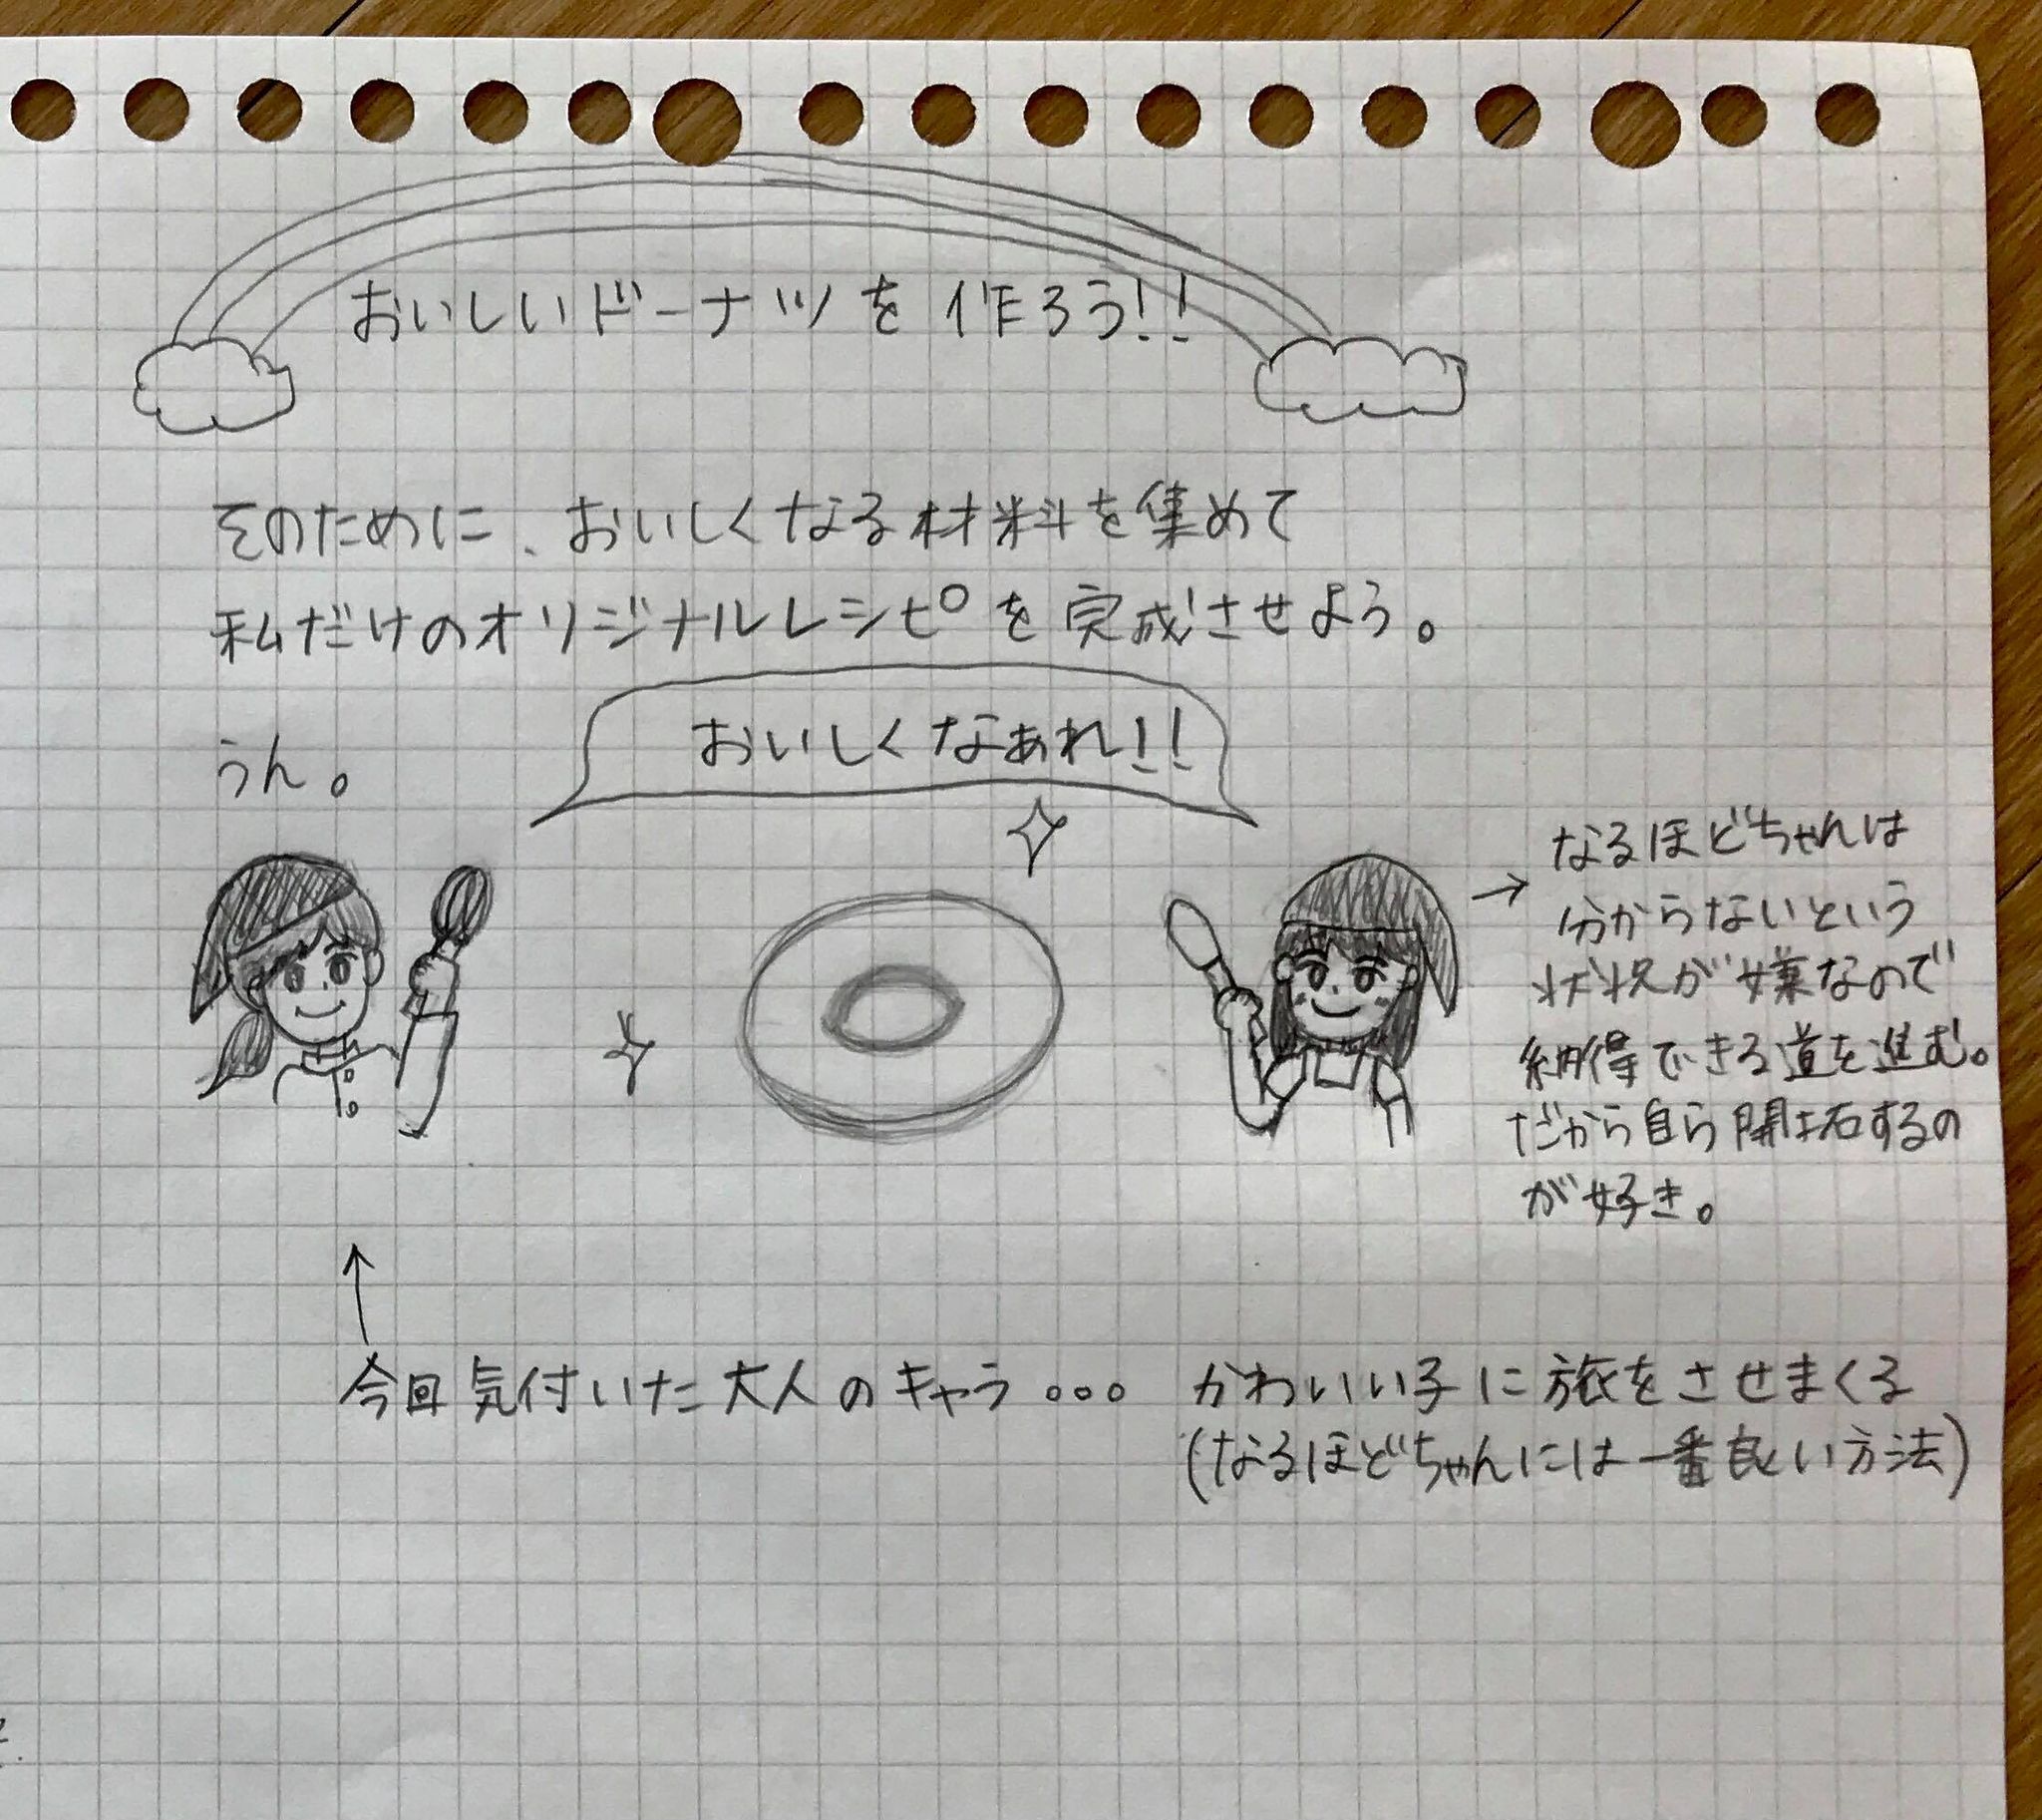 おいしいドーナツを作ろう!!
そのために、おいしくなる材料を集めて
私だけのオリジナルレシピを完成させよう。
うん。
おいしくなぁれ!!
なるほどちゃんは
分からないという
状況が嫌なので
納得できる道を進む。
だから自ら開拓するの
が好き。
今回気付いた大人のキャラ... かわいい子に旅をさせまくる
(なるほどちゃんには一番良い方法)